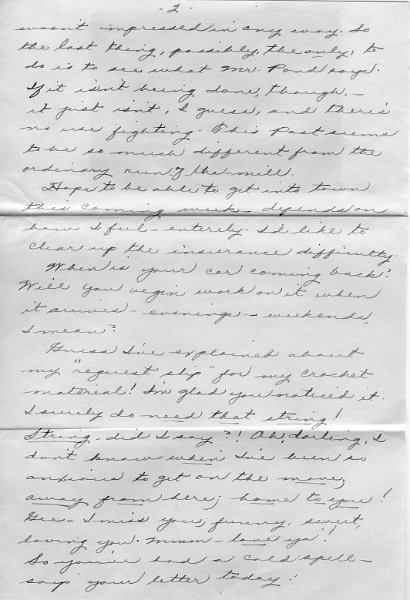 - 2 -
wasn't impressed in any way. So
the last thing, possibly, the only, to
do is to see what Mr. Pond says.
If it isn't being done, though, -
it just isn't, I guess, and there's
no use fighting. This Post seems
to be so much different from the
ordinary run of the mill.
Hope to be able to get into town
this coming week - depends on
how I feel - entirely. I'd like to
clear up the insurance difficulty.
When is your car coming back?
Will you begin work on it when
it arrives - evenings - weekends,
I mean?
Guess I've explained about
my "request slip" for my crochet
material! I'm glad you noticed it.
I surely do need that string!
String, did I say?! Oh, darling, I
don't know when I've been so
anxious to get on the move,
away from here; home to you!
Gee - I miss you, funny, sweet,
loving you. Mmm - love ya'!
So you've had a cold spell -
says your letter today!